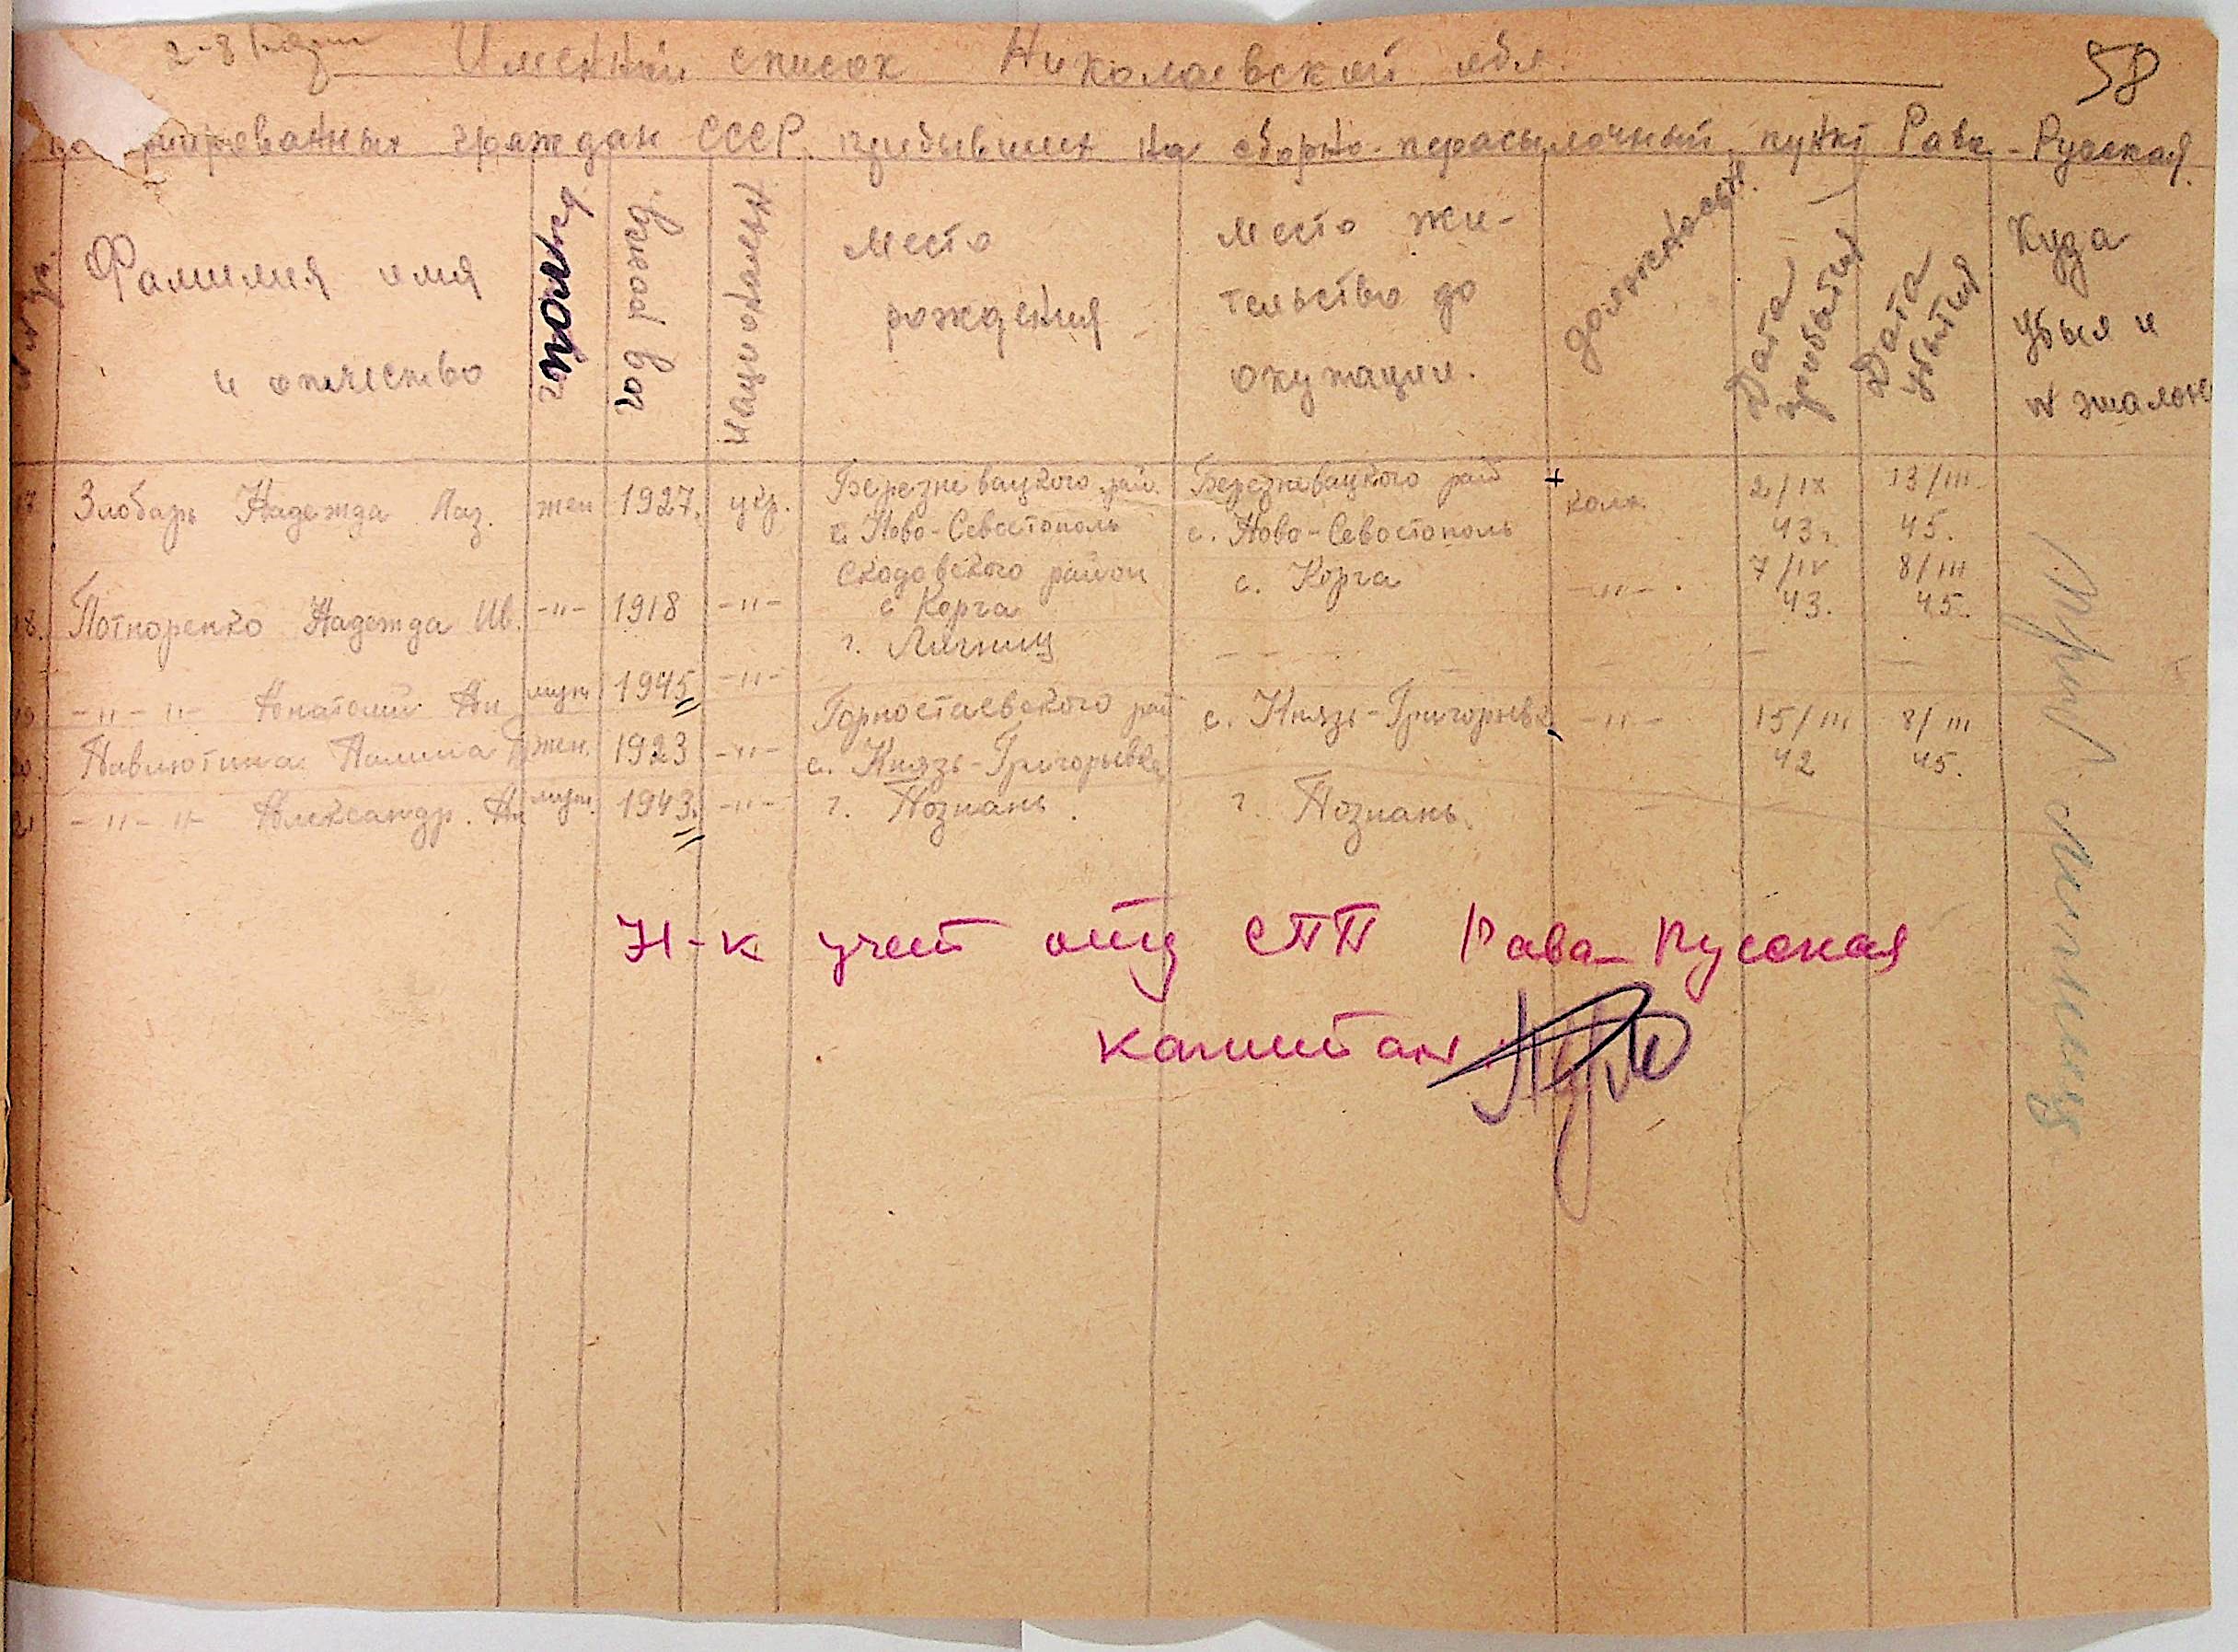 Именной список Николаевской обл.
58
граждан СССР прибывших на сборно-пересылочный пункт Рава-Русская.
Фамилия имя и отчество
пол
год рожд.
национальн
место рождения
место жительство до окупации.
должность
Дата прибытия
Дата убытия
Куда убыл и № эталона
17 Злобарь Надежда Лаз. жен 1927. укр. Березневацкого рай. с. Ново-Севостополь Березневацкого рай с. Ново-Севостополь + колх. 2/IX 43г. 13/III 45.
18. Надежда Ив. -"- 1918 -"- Скадовского район с Корга с. Корга -"- 7/IV 43. 8/III 45.
19 -"- "- Анатолий Ан муж 1945 -"- г. Лигниц
20. Павлютина жен. 1923 -"- Горностаевского рай с. Князь-Григорьевка с. Князь-Григорьевка -"- 15/III 42 8/III 45.
21 -"- "- Александр. Ан муж. 1943. -"- г. Познань. г. Познань.
Н-к учет отд СПП Рава-Русская
капитан